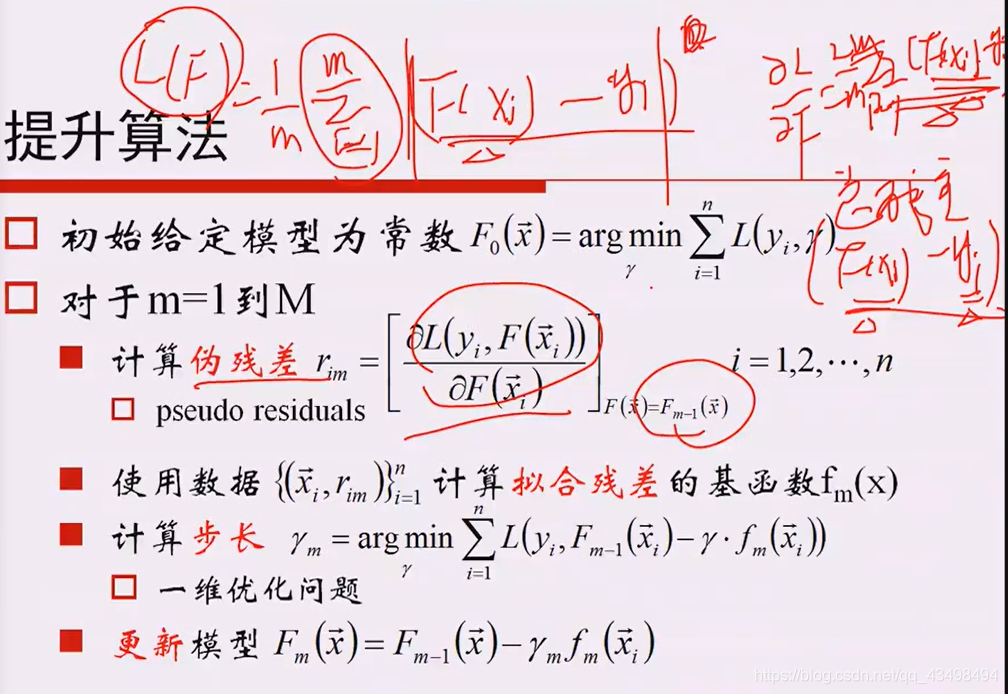 L(F) = 1/m Σ F(xi) - yi
∂L/∂F
提升算法
F(xi) - yi
初始给定模型为常数 F₀(x⃗) = arg min_γ Σ_{i=1}^{n} L(yᵢ, γ)
对于m=1到M
计算伪残差 r_{im} = [∂L(yᵢ, F(x⃗ᵢ)) / ∂F(x⃗ᵢ)]_{F(x⃗)=F_{m-1}(x⃗)} i = 1,2,⋯,n
pseudo residuals
使用数据 {(x⃗ᵢ, r_{im})}_{i=1}^{n} 计算拟合残差的基函数f_m(x)
计算步长 γ_m = arg min_γ Σ_{i=1}^{n} L(yᵢ, F_{m-1}(x⃗ᵢ) - γ · f_m(x⃗ᵢ))
一维优化问题
更新模型 F_m(x⃗) = F_{m-1}(x⃗) - γ_m f_m(x⃗ᵢ)
https://blog.csdn.net/qq_43498494